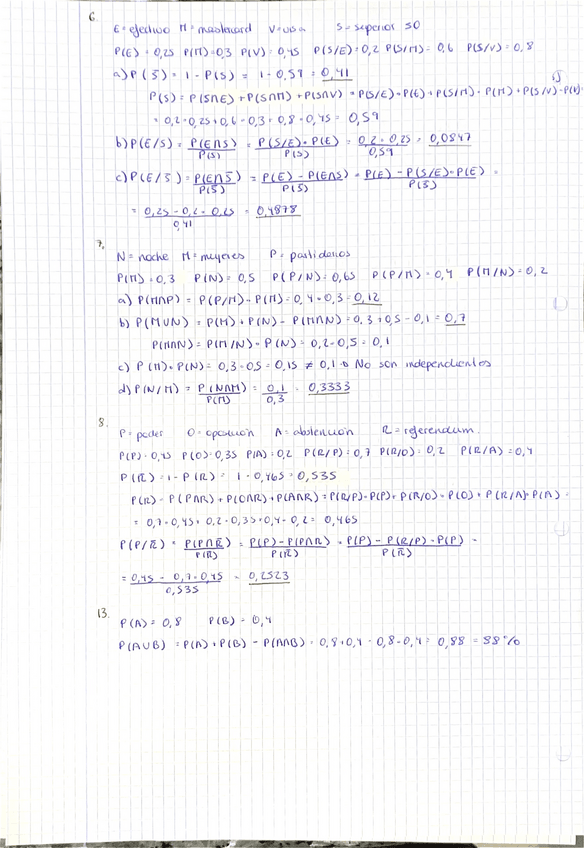 6.
E = efectivo M = mastercard V = visa S = superior 50
P(E) = 0,25 P(M) = 0,3 P(V) = 0,45 P(S/E) = 0,2 P(S/M) = 0,6 P(S/V) = 0,8
a) P(S̄) = 1 - P(S) = 1 - 0,59 = 0,41
P(S) = P(S∩E) + P(S∩M) + P(S∩V) = P(S/E) · P(E) + P(S/M) · P(M) + P(S/V) · P(V) =
= 0,2 · 0,25 + 0,6 · 0,3 + 0,8 · 0,45 = 0,59
b) P(E/S) = P(E∩S)/P(S) = P(S/E) · P(E)/P(S) = 0,2 · 0,25/0,59 = 0,0847
c) P(E/S̄) = P(E∩S̄)/P(S̄) = P(E) - P(E∩S)/P(S̄) = P(E) - P(S/E) · P(E)/P(S̄) =
= 0,25 - 0,2 · 0,25/0,41 = 0,4878
7.
N = noche M = mujeres P = partidarios
P(M) = 0,3 P(N) = 0,5 P(P/N) = 0,65 P(P/M) = 0,4 P(M/N) = 0,2
a) P(M∩P) = P(P/M) · P(M) = 0,4 · 0,3 = 0,12
b) P(M∪N) = P(M) + P(N) - P(M∩N) = 0,3 + 0,5 - 0,1 = 0,7
P(M∩N) = P(M/N) · P(N) = 0,2 · 0,5 = 0,1
c) P(M) · P(N) = 0,3 · 0,5 = 0,15 ≠ 0,1 → No son independientes
d) P(N/M) = P(N∩M)/P(M) = 0,1/0,3 = 0,3333
8.
P = poder O = oposición A = abstención R = referendum.
P(P) = 0,45 P(O) = 0,35 P(A) = 0,2 P(R/P) = 0,7 P(R/O) = 0,2 P(R/A) = 0,4
P(R̄) = 1 - P(R) = 1 - 0,465 = 0,535
P(R) = P(P∩R) + P(O∩R) + P(A∩R) = P(R/P) · P(P) + P(R/O) · P(O) + P(R/A) · P(A) =
= 0,7 · 0,45 + 0,2 · 0,35 + 0,4 · 0,2 = 0,465
P(P/R̄) = P(P∩R̄)/P(R̄) = P(P) - P(P∩R)/P(R̄) = P(P) - P(R/P) · P(P)/P(R̄) =
= 0,45 - 0,7 · 0,45/0,535 = 0,2523
13.
P(A) = 0,8 P(B) = 0,4
P(A∪B) = P(A) + P(B) - P(A∩B) = 0,8 + 0,4 - 0,8 · 0,4 = 0,88 = 88%